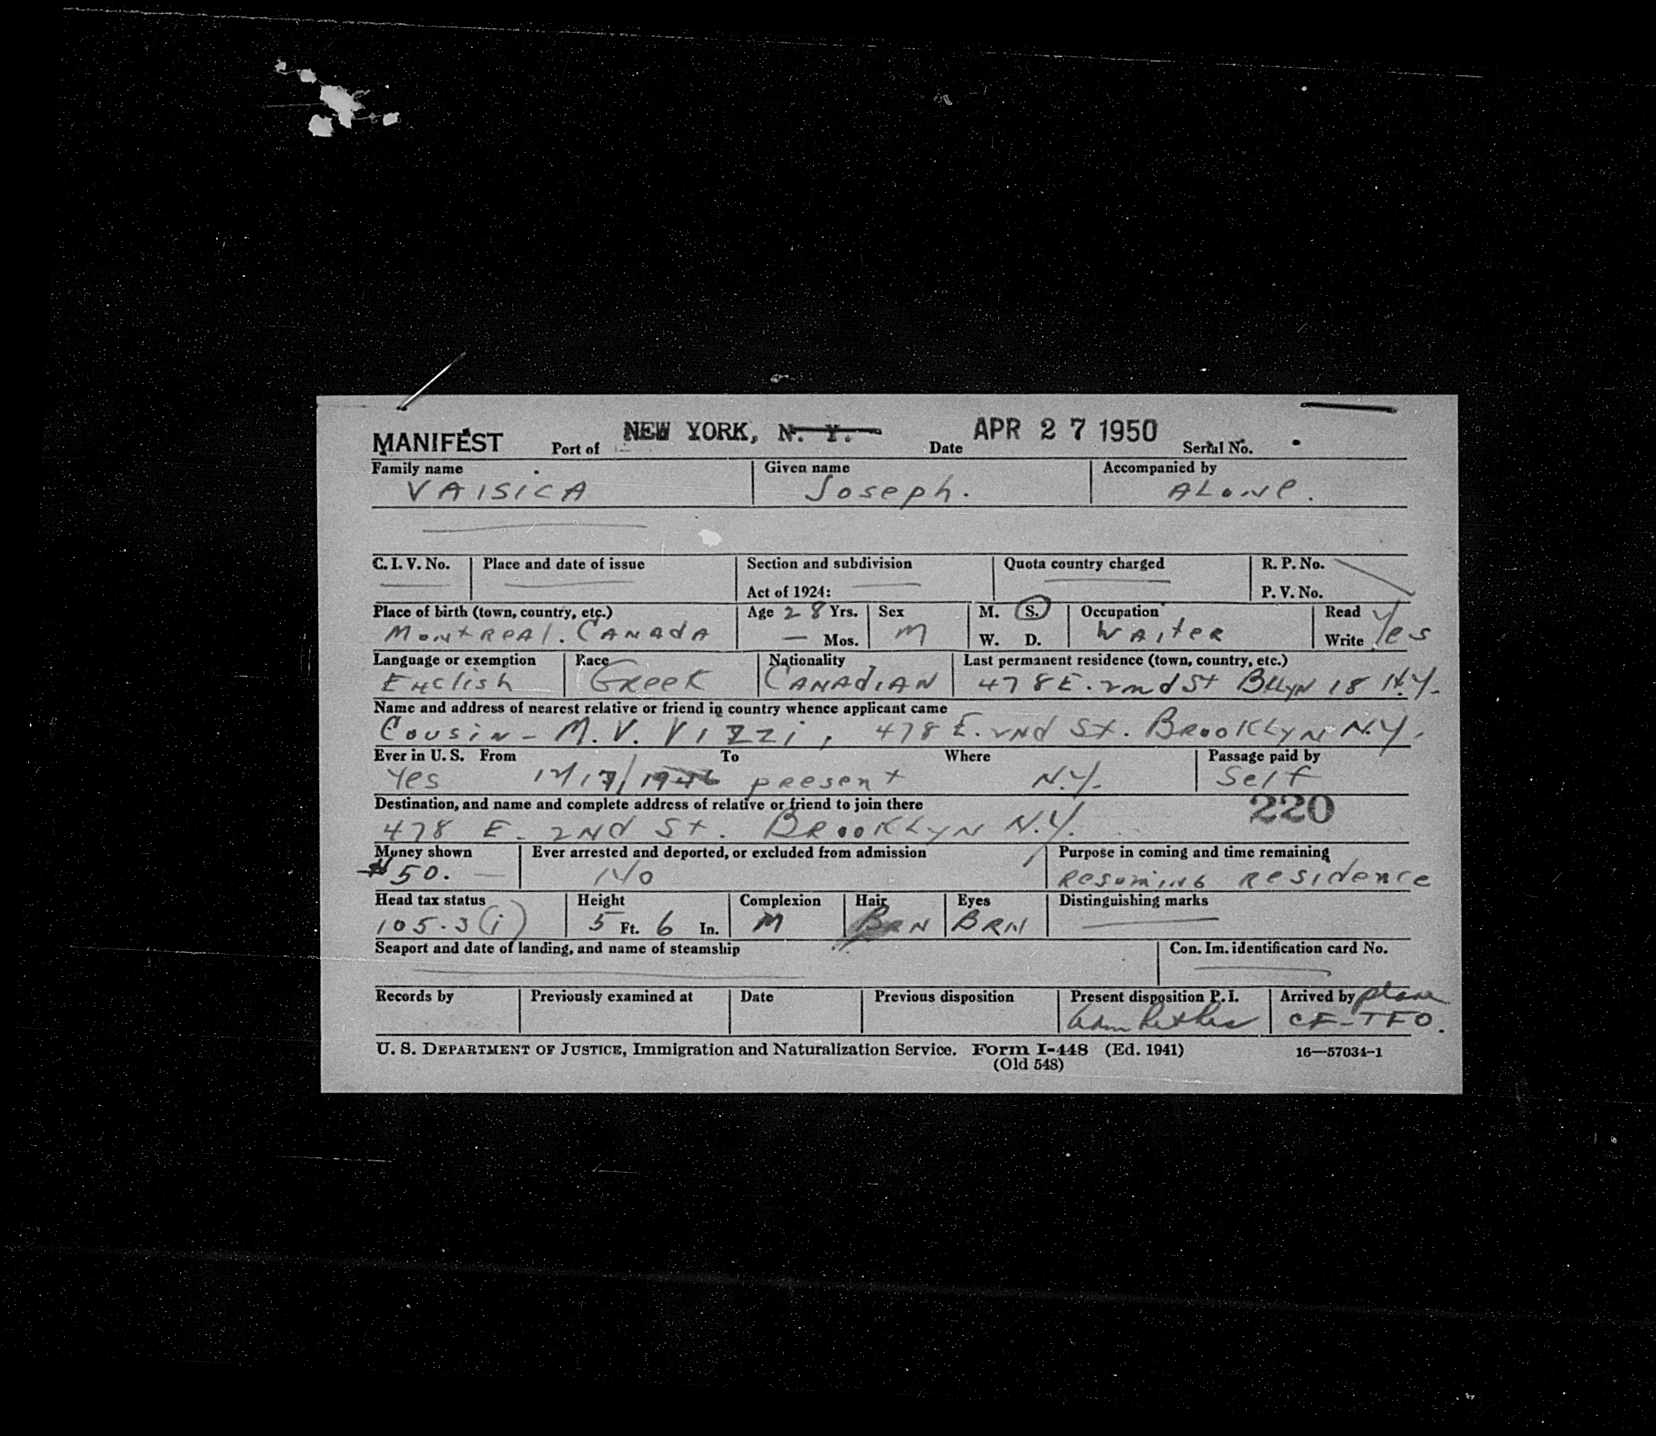 MANIFEST Port of NEW YORK, N. Y. Date APR 27 1950 Serial No.
Family name Given name Accompanied by
VAISICA Joseph. ALONE.
C. I. V. No. Place and date of issue Section and subdivision Quota country charged R. P. No.
Act of 1924: P. V. No.
Place of birth (town, country, etc.) Age 28 Yrs. Sex M. S. Occupation Read Yes
Montreal. CANADA — Mos. M W. D. Waiter Write
Language or exemption Race Nationality Last permanent residence (town, country, etc.)
English Greek CANADIAN 478 E. 2nd St BKLYN 18 N.Y.
Name and address of nearest relative or friend in country whence applicant came
Cousin - M. V. Vizzi, 478 E. 2nd St. BROOKLYN N.Y.
Ever in U. S. From To Where Passage paid by
Yes 12/17/1946 present N.Y. Self
Destination, and name and complete address of relative or friend to join there 220
478 E. 2nd St. BROOKLYN N.Y.
Money shown Ever arrested and deported, or excluded from admission Purpose in coming and time remaining
$50. — No Resuming Residence
Head tax status Height Complexion Hair Eyes Distinguishing marks
105.3(i) 5 Ft. 6 In. M BRN BRN
Seaport and date of landing, and name of steamship Con. Im. identification card No.
Records by Previously examined at Date Previous disposition Present disposition P. I. Arrived by plane
CF-TFO.
U. S. DEPARTMENT OF JUSTICE, Immigration and Naturalization Service. Form I-448 (Ed. 1941) 16—57034-1
(Old 548)